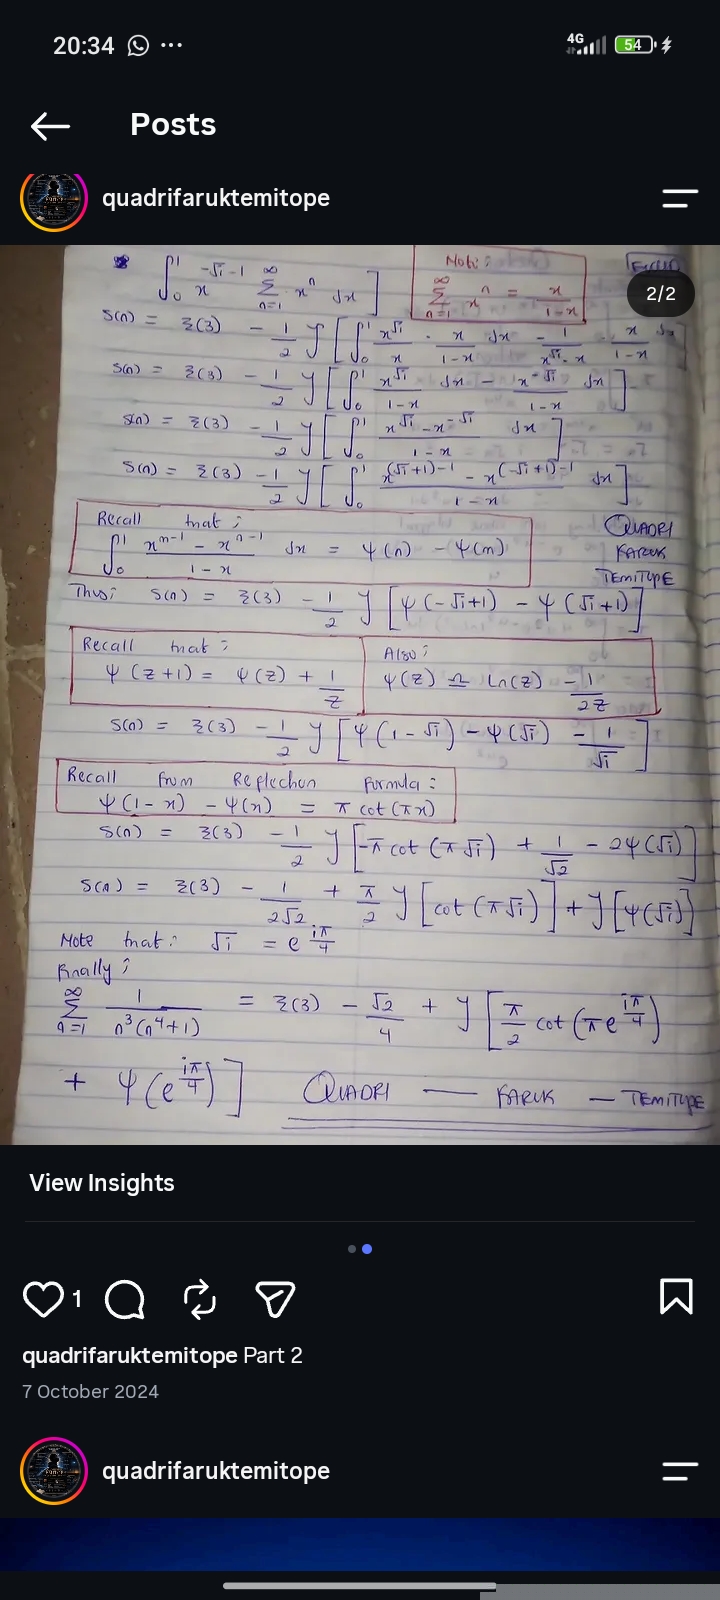 20:34
4G 54
Posts
quadrifaruktemitope
2/2
∫₀¹ x^(-√i-1) Σ_(n=1)^∞ x^n dx ]
Note: Σ_(n=1)^∞ x^n = x/(1-x)
S(n) = ξ(3) - 1/2 ℐ [ ∫₀¹ x^√i/x · x/(1-x) dx - 1/(x^√i · x) · x/(1-x) dx
S(n) = ξ(3) - 1/2 ℐ [ ∫₀¹ x^√i/(1-x) dx - x^(-√i)/(1-x) dx ]
S(n) = ξ(3) - 1/2 ℐ [ ∫₀¹ (x^√i - x^(-√i))/(1-x) dx ]
S(n) = ξ(3) - 1/2 ℐ [ ∫₀¹ (x^((√i+1)-1) - x^((-√i+1)-1))/(1-x) dx ]
Recall that;
∫₀¹ (x^(m-1) - x^(n-1))/(1-x) dx = ψ(n) - ψ(m)
QUADRI
FARUK
TEMITOPE
Thus; S(n) = ξ(3) - 1/2 ℐ [ ψ(-√i+1) - ψ(√i+1) ]
Recall that:
ψ(z+1) = ψ(z) + 1/z
Also;
ψ(z) ≏ ln(z) - 1/2z
S(n) = ξ(3) - 1/2 ℐ [ ψ(1-√i) - ψ(√i) - 1/√i ]
Recall from Reflection formula:
ψ(1-x) - ψ(x) = π cot(πx)
S(n) = ξ(3) - 1/2 ℐ [ -π cot(π√i) + 1/√2 - 2ψ(√i) ]
S(n) = ξ(3) - 1/(2√2) + π/2 ℐ [ cot(π√i) ] + ℐ [ ψ(√i) ]
Note that: √i = e^(iπ/4)
Finally;
Σ_(n=1)^∞ 1/(n³(n⁴+1)) = ξ(3) - √2/4 + ℐ [ π/2 cot(πe^(iπ/4))
+ ψ(e^(iπ/4)) ] QUADRI — FARUK — TEMITOPE
View Insights
1
quadrifaruktemitope Part 2
7 October 2024
quadrifaruktemitope